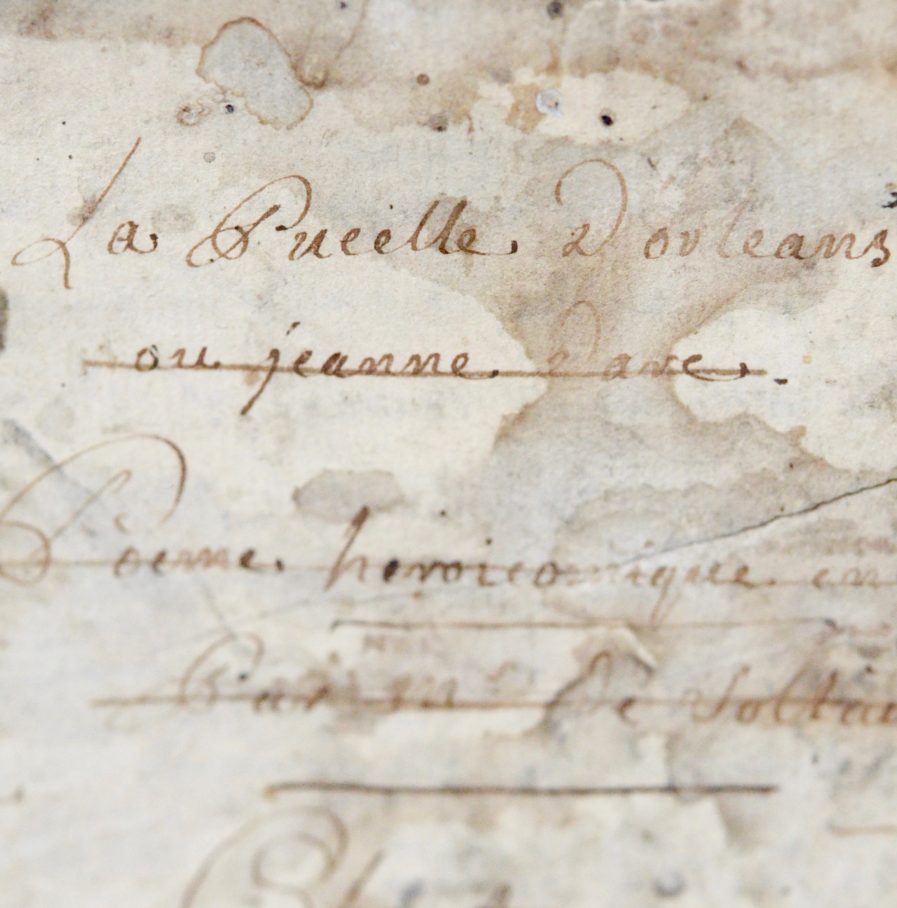 La Pucelle Dorleans
ou jeanne Darc.
Poeme heroicomique en
Par Mr De Voltai